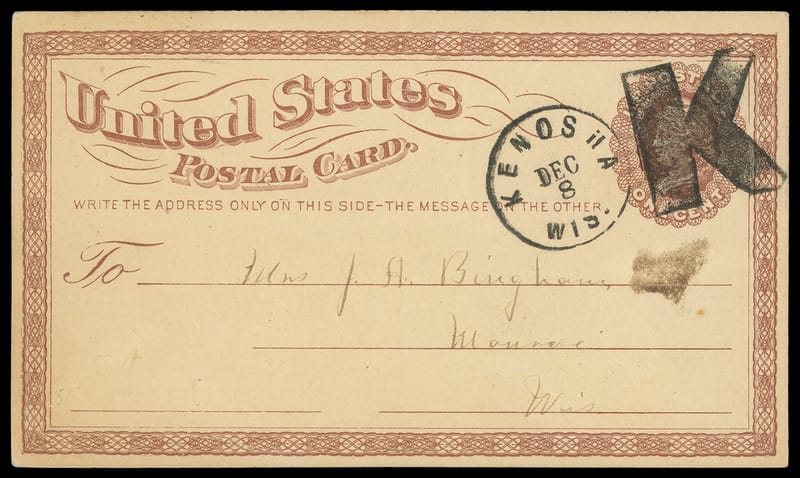 United States
POSTAL CARD.
WRITE THE ADDRESS ONLY ON THIS SIDE–THE MESSAGE ON THE OTHER.
KENOSHA
DEC
8
WIS.
K
POST
ONE CENT
To Mrs J. H. Bingham,
Monroe
Wis